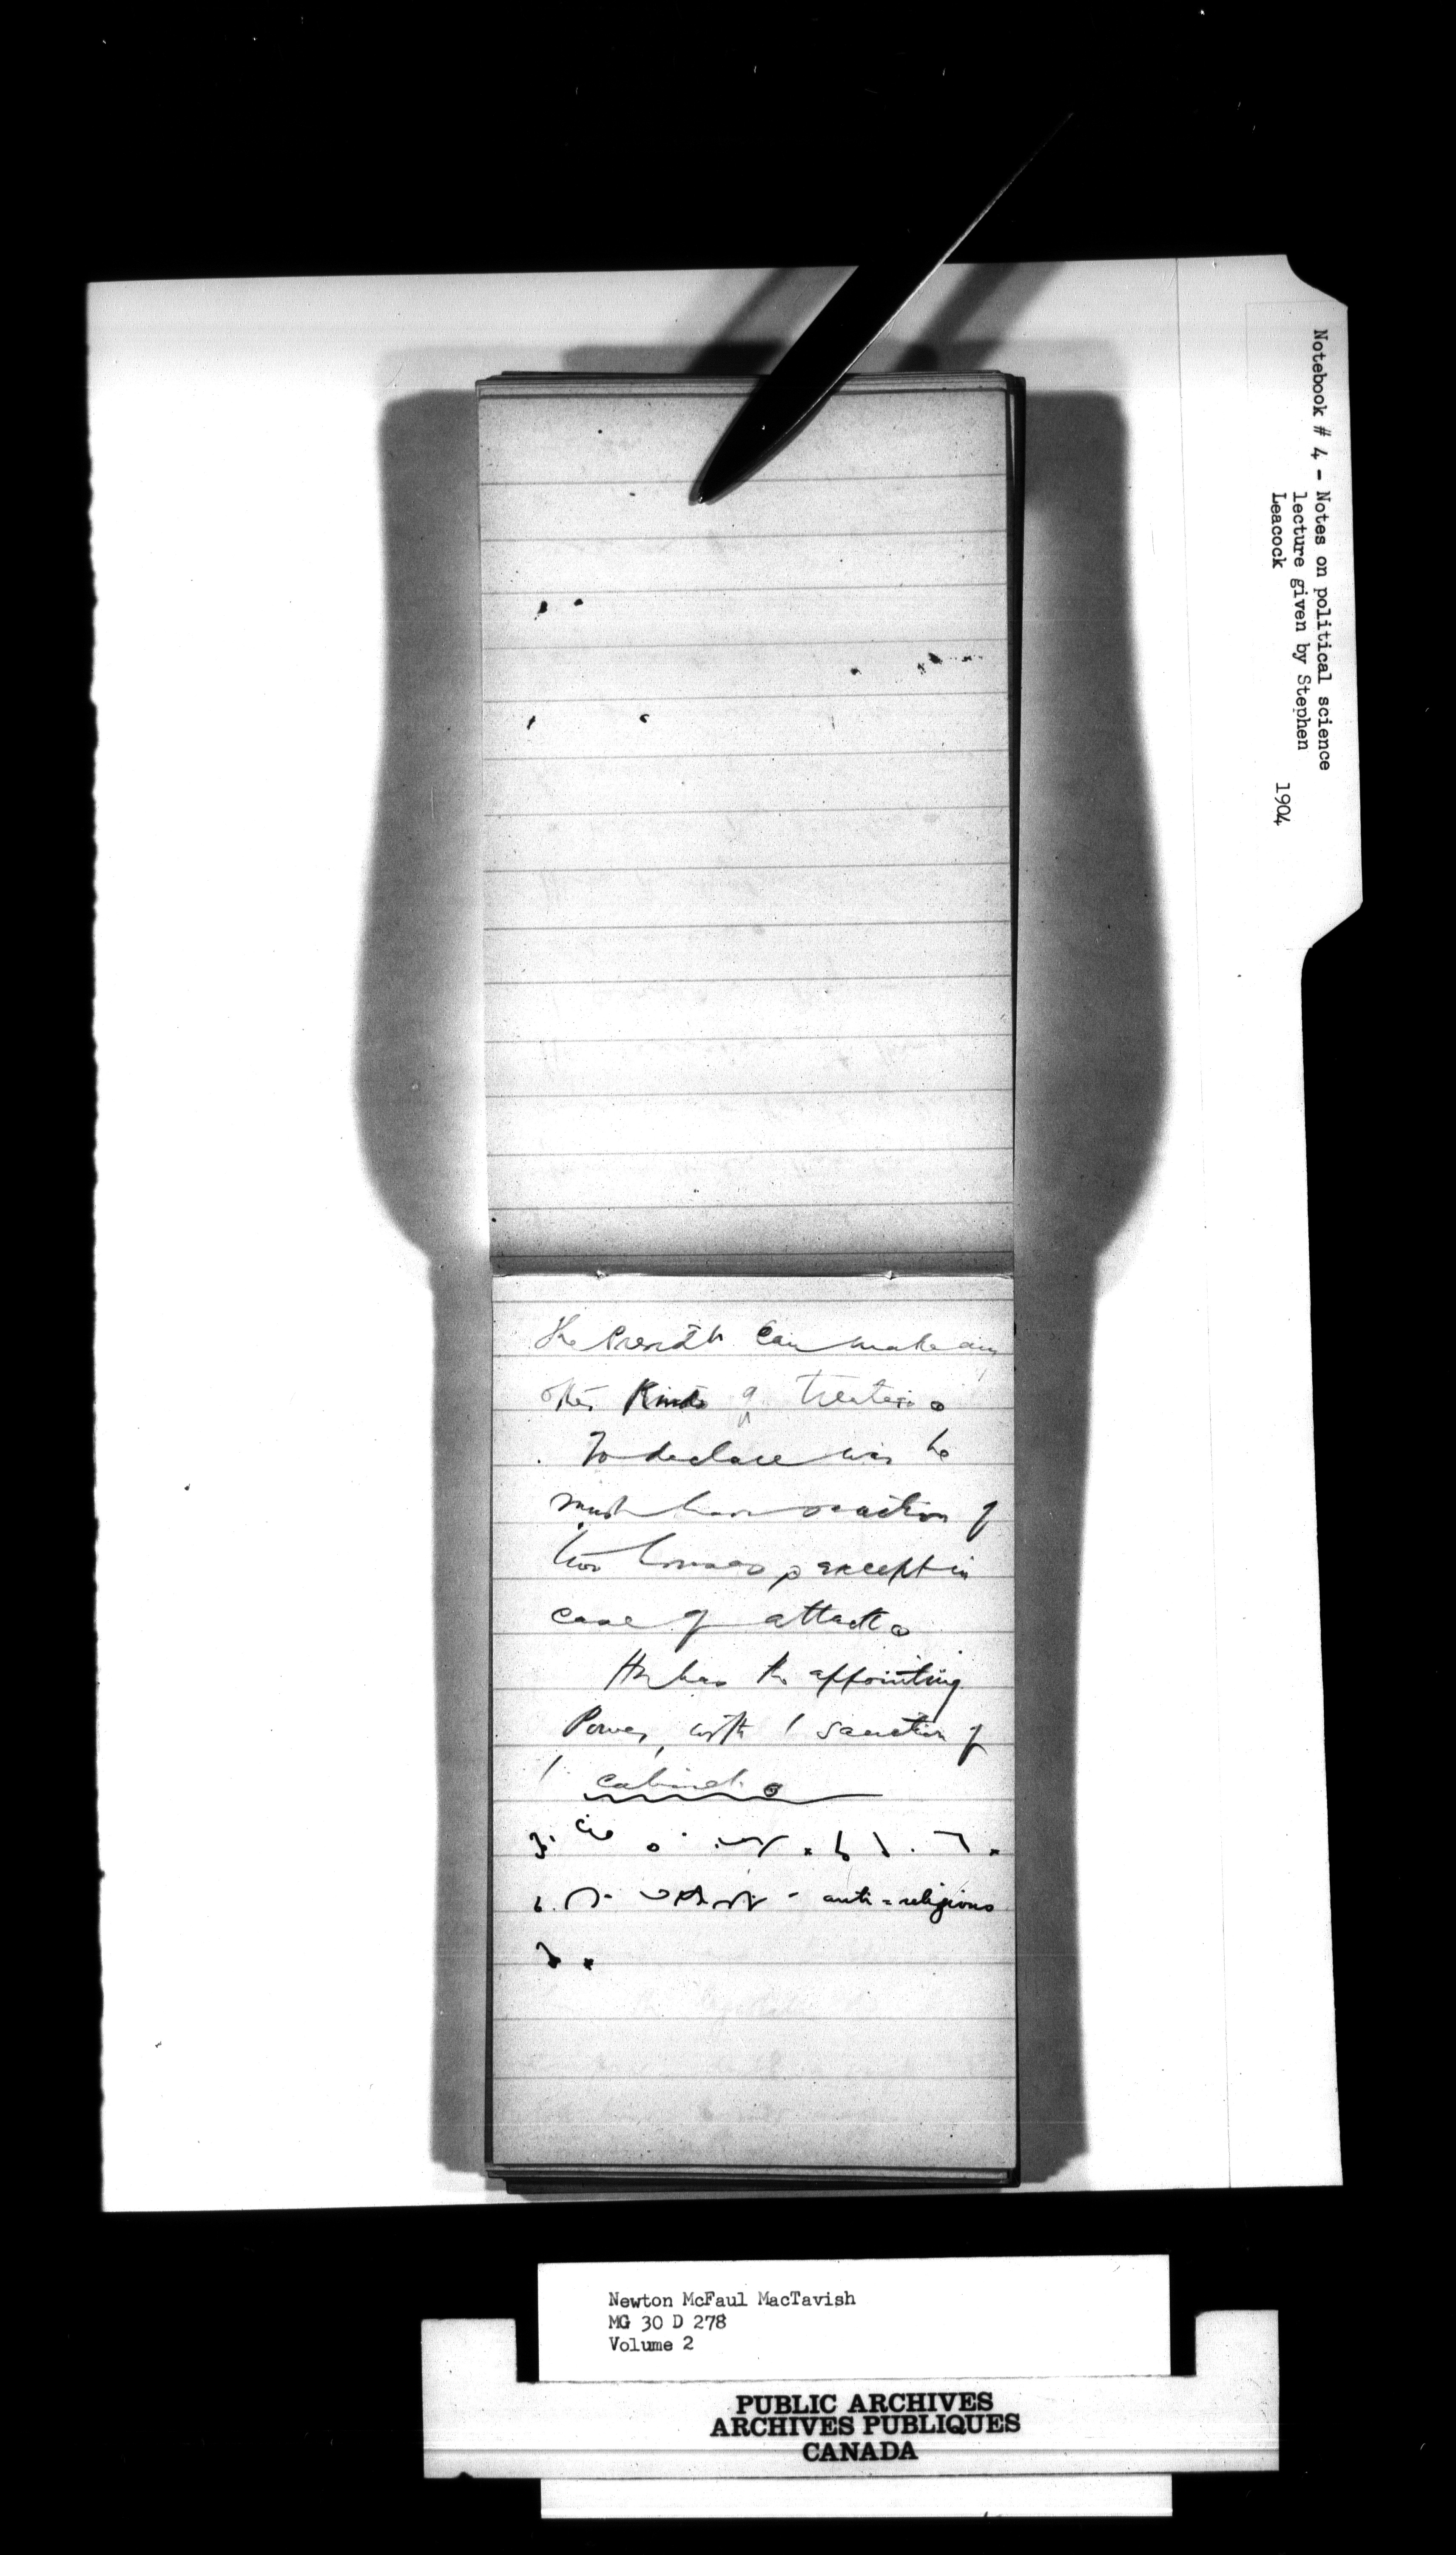 Notebook # 4 - Notes on political science
lecture given by Stephen
Leacock 1904
The Presidt can make any
other kinds of treaties.
To declare war he
must have sanction of
two houses, except in
case of attack.
He has the appointing
Power, with / sanction of
/ cabinet.
anti-religious
Newton McFaul MacTavish
MG 30 D 278
Volume 2
PUBLIC ARCHIVES
ARCHIVES PUBLIQUES
CANADA